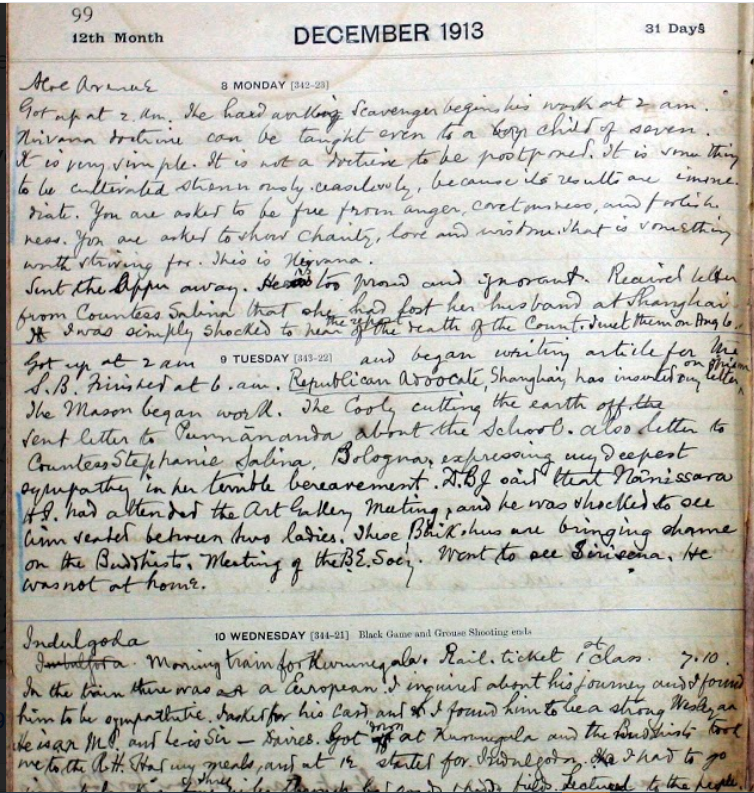 99
12th Month DECEMBER 1913 31 Days
Aloe Avenue 8 MONDAY [342-23]
Got up at 2 a.m. The hard working Scavenger begins his work at 2 am.
Nirvana doctrine can be taught even to a boy child of seven.
It is very simple. It is not a doctrine to be postponed. It is something
to be cultivated strenuously, ceaselessly, because its results are imme-
diate. You are asked to be free from anger, covetousness, and foolish
ness. You are asked to show charity, love and wisdom. That is something
worth striving for. This is Nirvana.
Sent the Appu away. He is too proud and ignorant. Received letter
from Countess Salina that she had lost her husband at Shanghai.
I was simply shocked to hear the report of the death of the Count. I met them on Aug 6.
Got up at 2 am 9 TUESDAY [343-22] and began writing article for the
S.B. Finished at 6 a.m. Republican Advocate, Shanghai, has inserted my letter on
The Mason began work. The Cooly cutting the earth off the
Sent letter to Punnananda about the School. also letter to
Countess Stephanie Salina, Bologna, expressing my deepest
sympathy in her terrible bereavement. D.B.J. said that Nānissara
H.P. had attended the Art Gallery Meeting, and he was shocked to see
him seated between two ladies. These Bhikshus are bringing shame
on the Buddhists. Meeting of the B.E. Socy. Went to see Sirisena. He
was not at home.
Indulgoda 10 WEDNESDAY [344-21] Black Game and Grouse Shooting ends
Morning train for Kurunegala. Rail. ticket 1st class. 7.10.
In the train there was a European. I inquired about his journey and I found
him to be sympathetic. I asked for his card and I found him to be a strong Wesleyan
He is an M.P. and he is Sir — Davies. Got down at Kurunegala and the Buddhists took
me to the R.H. Had my meals, and at 12 started for Indulgoda. I had to go
three miles through fields. Lectured to the people.